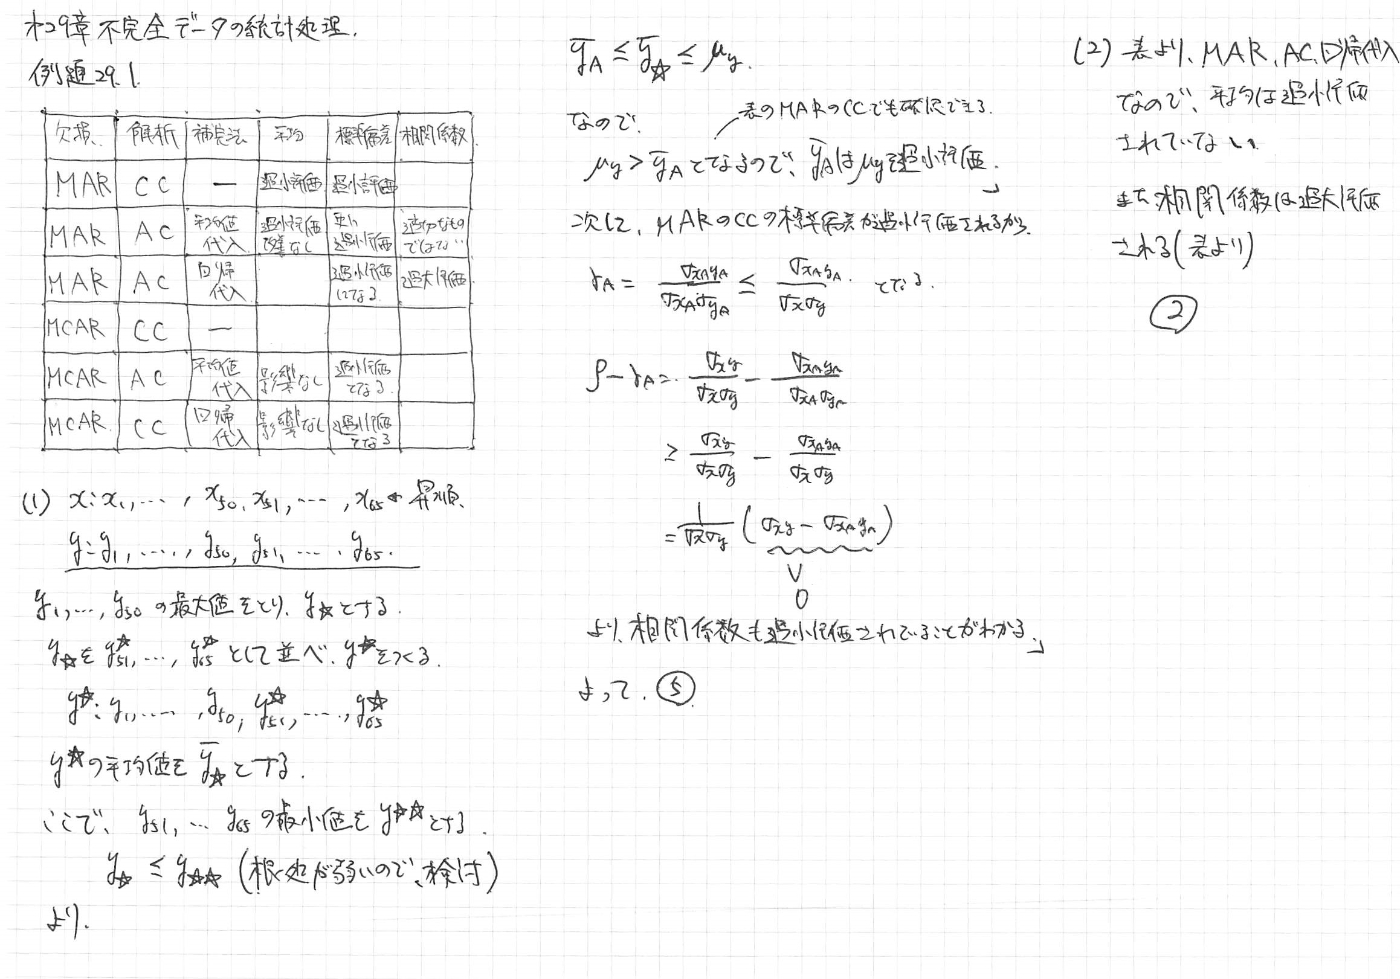 第29章 不完全データの統計処理.
例題29.1.
欠損 解析 補完法 平均 標準偏差 相関係数
MAR CC — 過小評価 過小評価
MAR AC 平均値代入 過小評価改善なし 更に過小評価 適切なものではない
MAR AC 回帰代入 過小評価になる 過大評価
MCAR CC —
MCAR AC 平均値代入 影響なし 過小評価となる
MCAR CC 回帰代入 影響なし 過小評価となる
(1) x: x₁, …, x₅₀, x₅₁, …, x₆₅ ← 昇順.
y: y₁, …, y₅₀, y₅₁, …, y₆₅.
y₁, …, y₅₀ の最大値をとり、y☆とする.
y☆を y₅₁☆, …, y₆₅☆ として並べ、y☆をつくる.
y☆: y₁, …, y₅₀, y₅₁☆, …, y₆₅☆
y☆の平均値を ȳ☆とする.
ここで、y₅₁, … y₆₅ の最小値を y☆☆とする.
y☆ ≤ y☆☆ (根拠が弱いので、検討)
より.
ȳA ≤ ȳ☆ ≤ μy.
なので.
表のMARのCCでも確認できる.
μy > ȳA となるので、ȳAはμyを過小評価.」
次に、MARのCCの標準偏差が過小評価されるから.
rA = σxAyA / σxAσyA ≤ σxAyA / σxσy. となる.
ρ − rA = σxy / σxσy − σxAyA / σxAσyA
≥ σxy / σxσy − σxAyA / σxσy
= 1 / σxσy (σxy − σxAyA)
∨
0
より、相関係数も過小評価されていることがわかる.」
よって. ⑤
(2) 表より、MAR, AC, 回帰代入
なので、平均は過小評価
されていない
また相関係数は過大評価
される(表より)
②